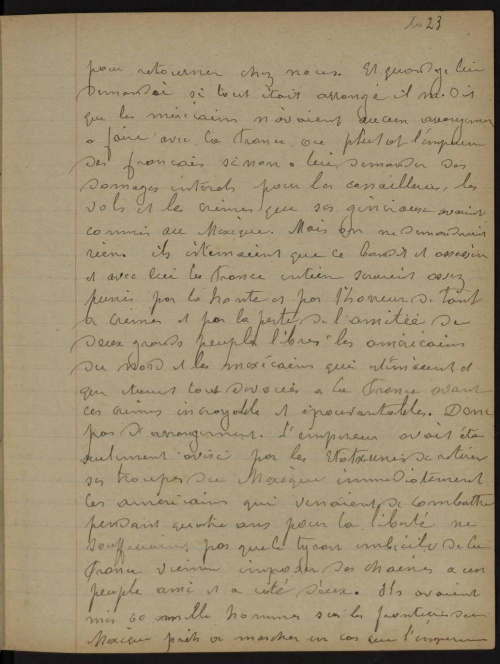 23
pour retourner chez nous. Et quand je lui
demandai si tout était arrangé il me dit
que les mexicains n'avaient aucun arrangement
a faire avec la France, ou plutot l'empereur
des français sinon a lui demander des
domages interets pour les canailleries, les
vols et les crimes que ses généraux avaient
commis au Mexique. Mais on ne demandait
rien. ils estimaient que ce bandit et assassin
et avec lui la France entière seraient assez
punis par la honte et par l'horreur de tant
de crimes et par la perte de l'amitiée de
deux grands peuples libres: les américains
du nord et les mexicains qui
que étaient tous devoués a la France avant
ces crimes incroyable et épouvantables. Donc
pas d'arrangement. L'empereur avait été
seulement avisé par les Etatsunis de retirer
ses troupes du Mexique immediatement
les américains qui venaient de combattre
pendant quatre ans pour la liberté ne
souffriraient pas que le tyran imbécile de la
France vienne imposer des chaines a un
peuple ami et a côté d'eux. Ils avaient
mis 60 mille hommes sur les frontières du
Mexique prêts a marcher en cas que l'empereur